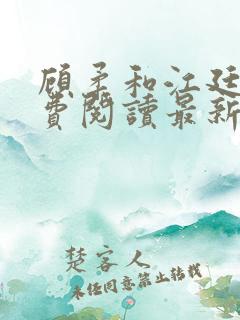 顾柔和江廷
费阅读最新
楚客人
未经同意禁止转载